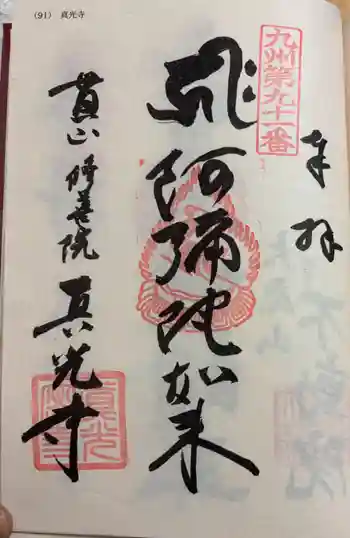 (91) 真光寺
九州第九十一番
奉拝
阿弥陀如来
修善院
真光寺
真光